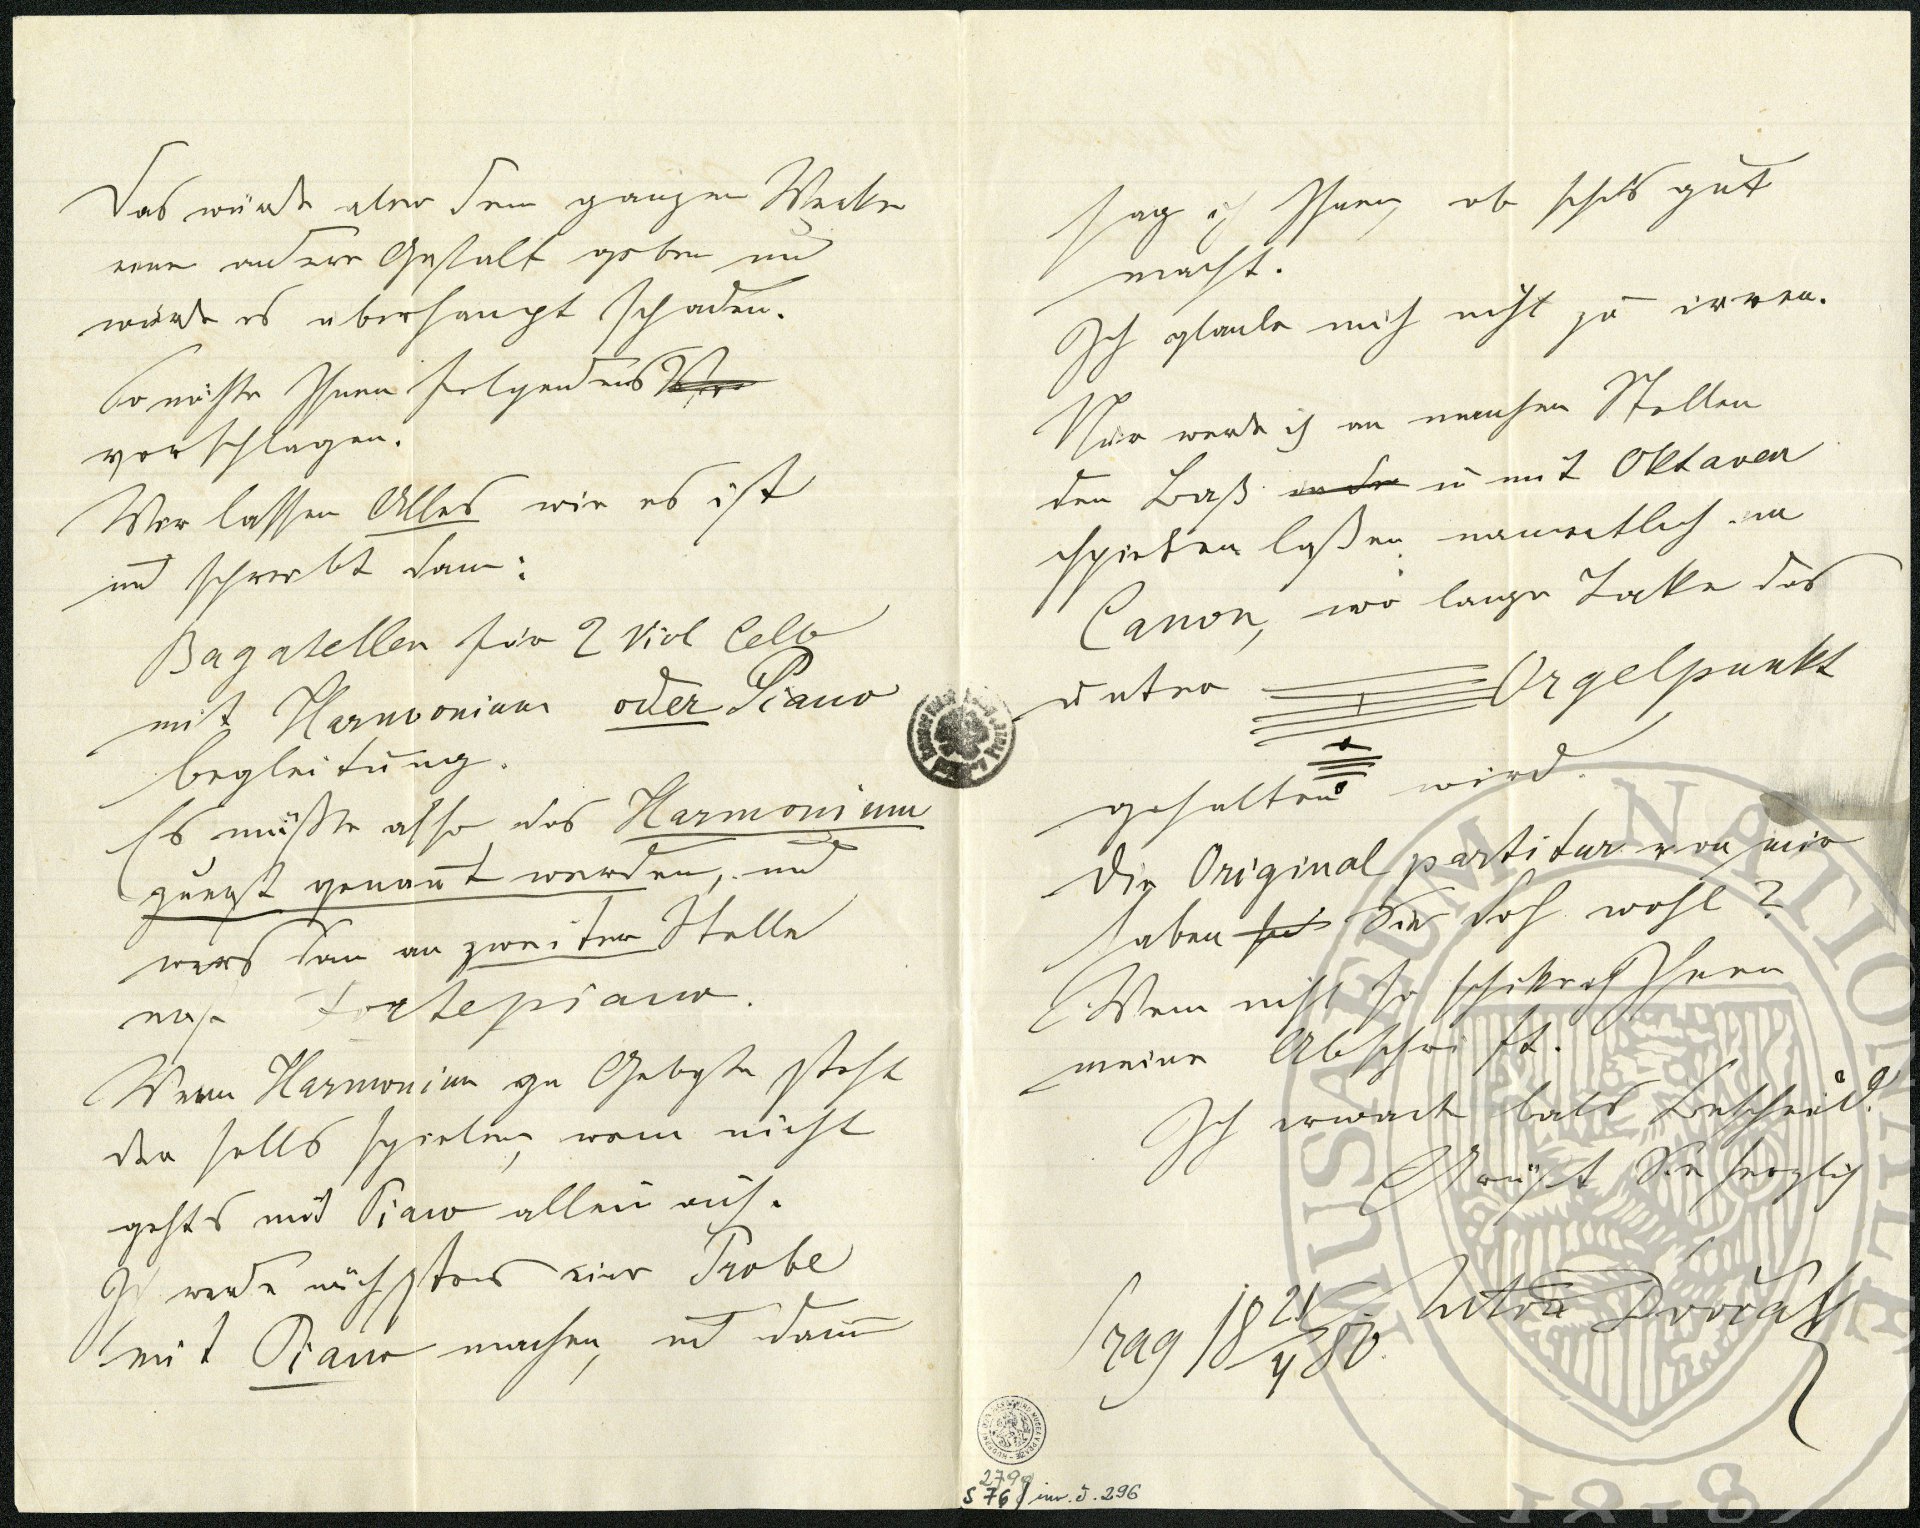 Das würde aber dem ganzen Werke
eine andere Gestalt geben und
würde es überhaupt schaden.
So möchte Ihnen folgendes Vor
vorschlagen.
Wir lassen Alles wie es ist
und schreibt dann:
Bagatellen für 2 Viol Cello
mit Harmonium oder Piano
begleitung.
Es müßte also das Harmonium
zuerst genannt werden, und
erst dann an zweiter Stelle
Fortepiano.
Wenn Harmonium zu Gebote steht
den solls spielen, wenn nicht
gehts mit Piano allein auch.
Ich werde nächstens eine Probe
mit Piano machen, und dann
sag ich Ihnen, ob sichs gut
macht.
Ich glaube mich nicht zu irren.
Nur werde ich an manchen Stellen
den Baß in der u mit Oktaven
spielen laßen namentlich im
Canon, wo lange Takte das
unten Orgelpunkt
gehalten wird.
Die Original partitur von mir
haben Sie doch wohl?
Wenn nicht so schike ich Ihnen
meine Abschrift.
Ich erwarte bald Bescheid.
Grüßt Sie herzlich
Antonín Dvořák
Prag 18 21/4 80.
2799
S 76 / inv. č. 296
MUSAEUM NATIONALE
1818